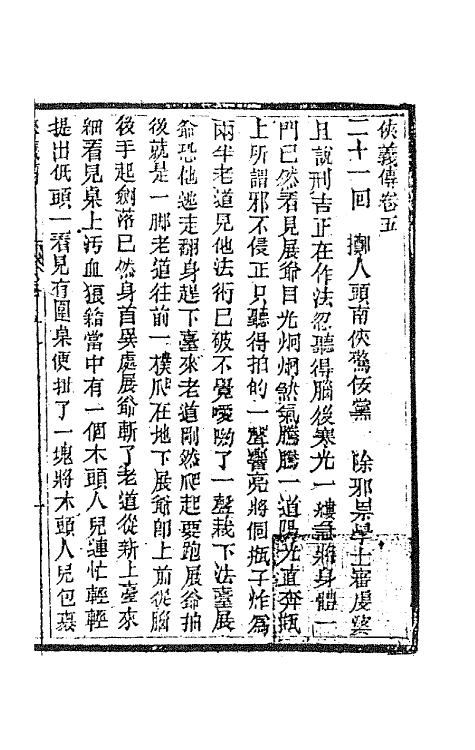 俠義傳卷五
二十一回　擲人頭南俠驚佞黨　除邪祟學士審虔婆
且說刑吉正在作法忽聽得腦後寒光一縷急將身體一
閃已然看見展爺目光炯炯煞氣騰騰一道陽光直奔瓶
上所謂邪不侵正只聽得拍的一聲響亮將個瓶子炸為
兩半老道見他法術已破不覺噯喲了一聲栽下法臺展
爺恐他逃走翻身趕下臺來老道剛然爬起要跑展爺抽
後就是一脚老道往前一撲爬在地下展爺卽上前從腦
後手起劍落已然身首異處展爺斬了老道從新上臺來
細看見桌上污血狼籍當中有一個木頭人兒連忙輕輕
提出低頭一看見有圍桌便扯了一塊將木頭人兒包裹